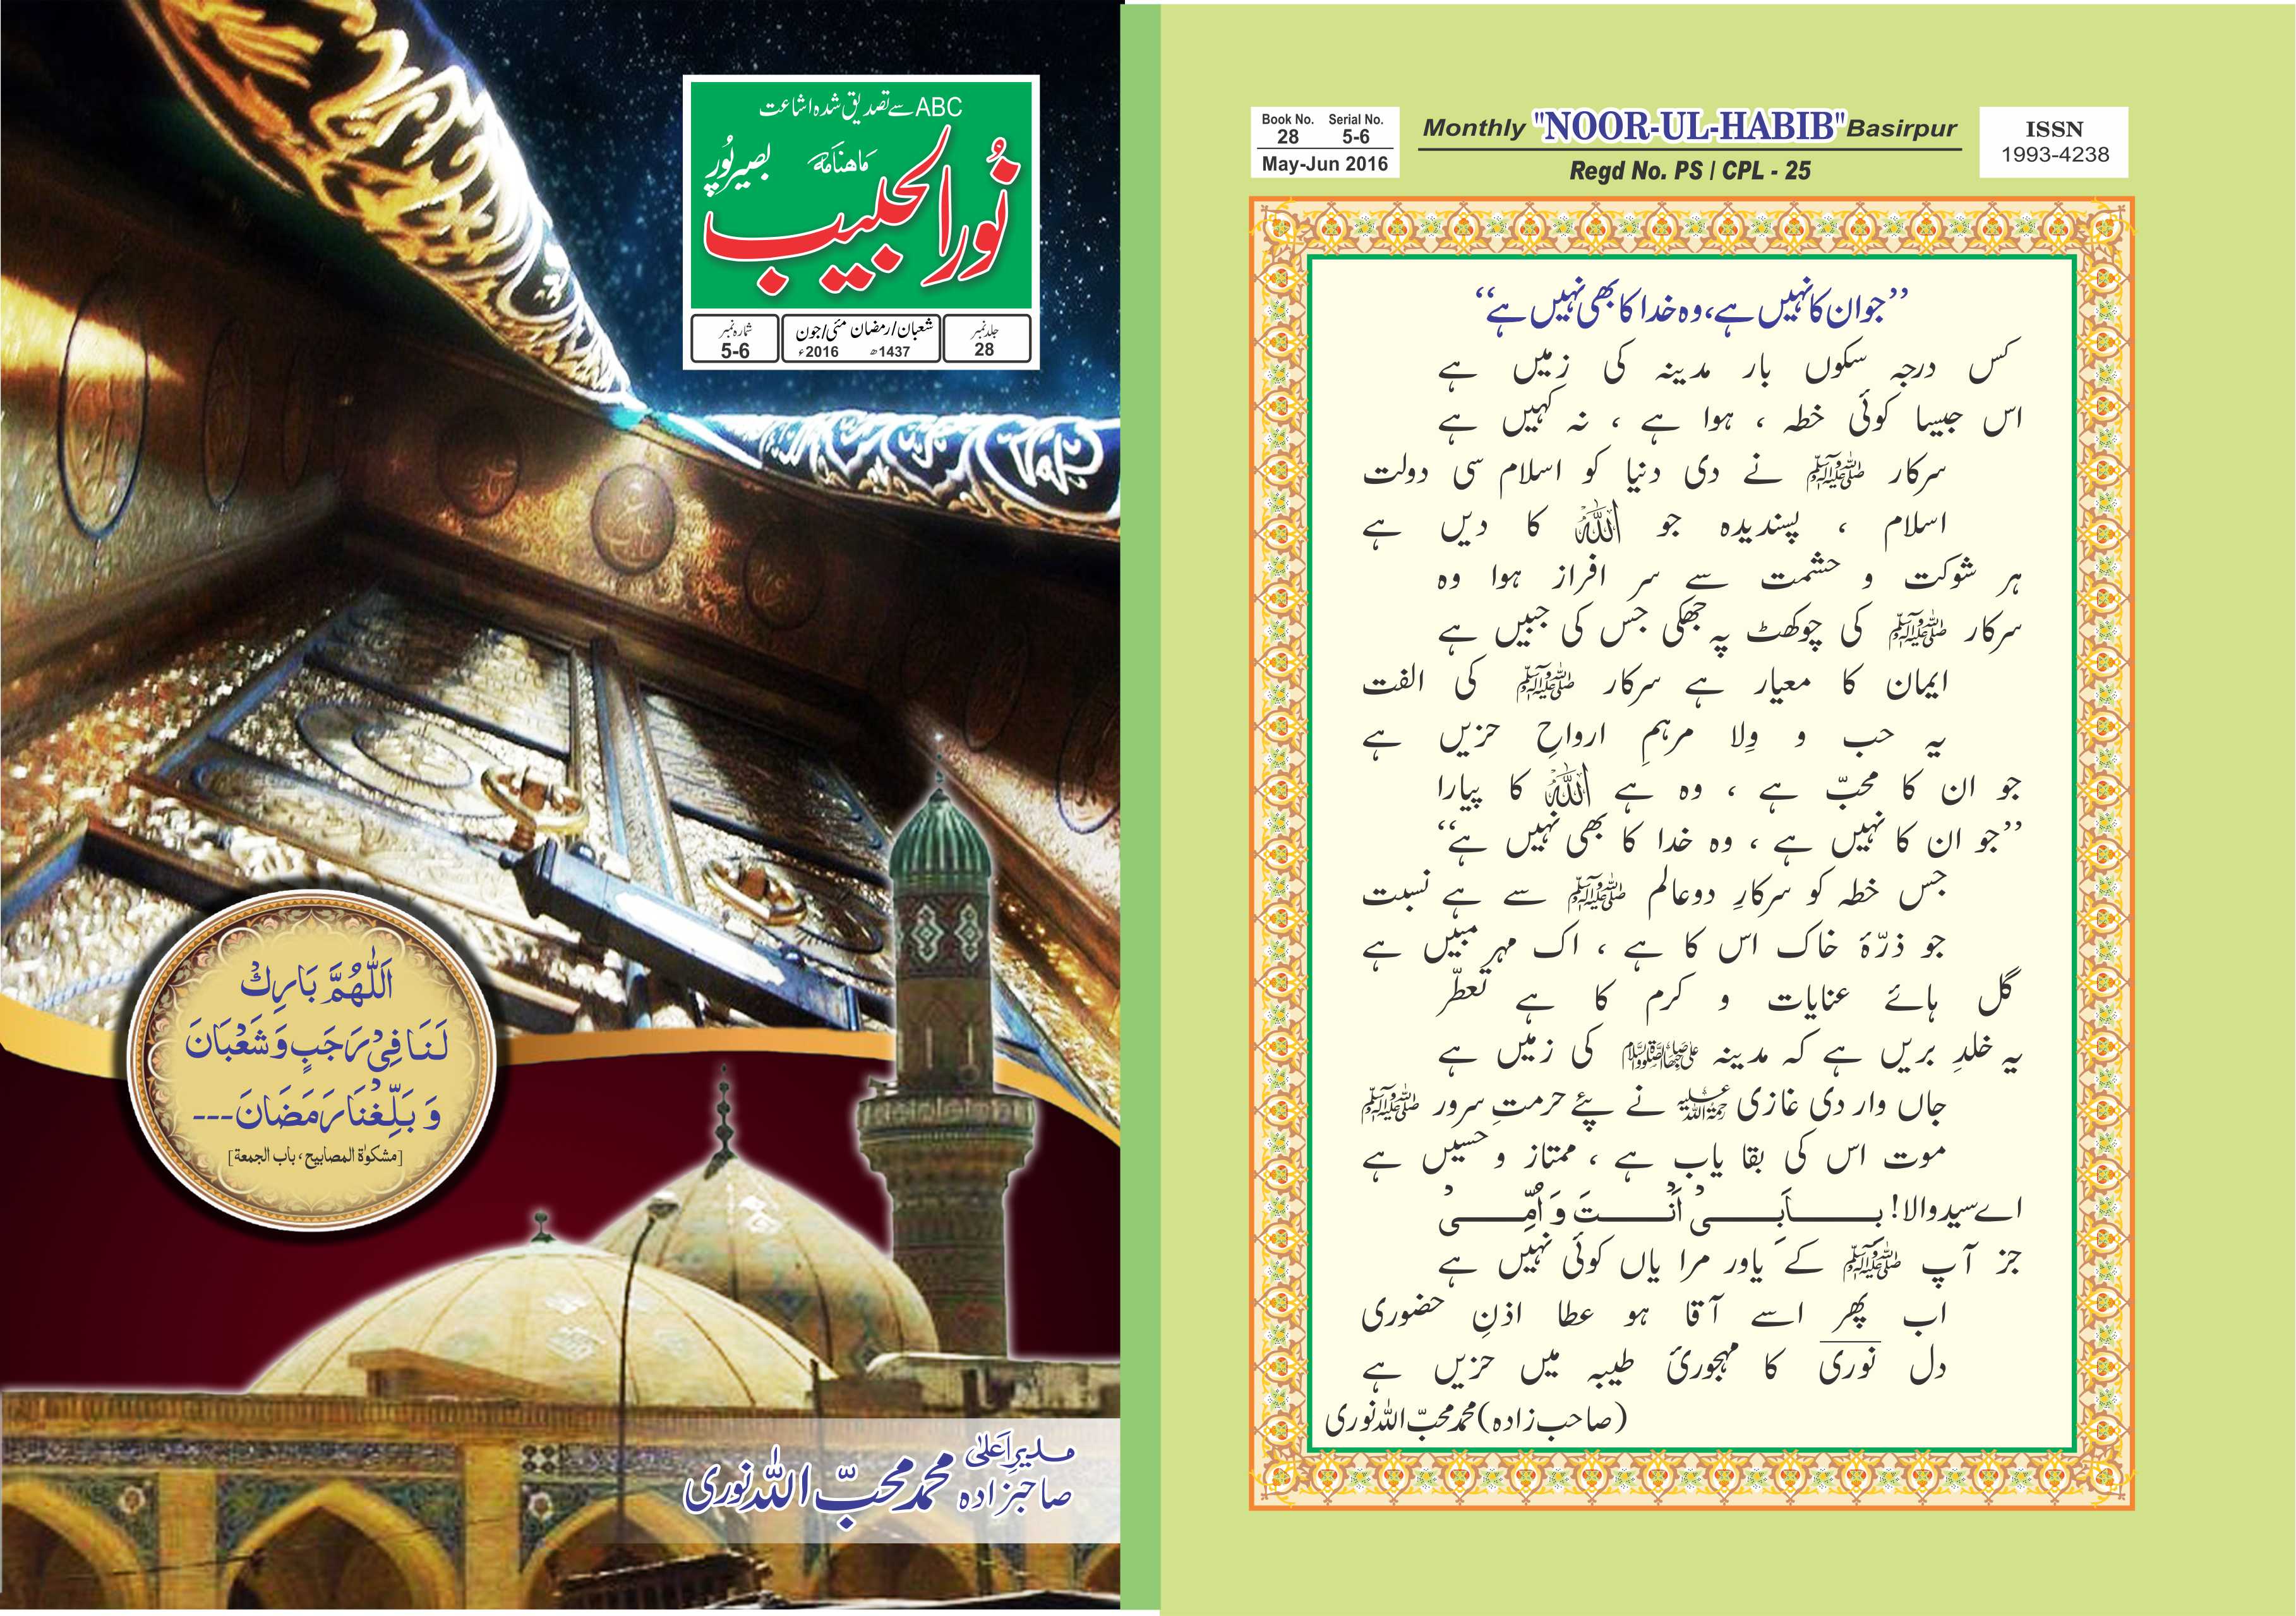 ABC سے تصدیق شدہ اشاعت
ماہنامہ بصیرپور
نُورالحبیب
جلد نمبر 28
شعبان/رمضان مئی/جون
1437ھ 2016ء
شمارہ نمبر 5-6
اَللّٰهُمَّ بَارِكْ
لَنَا فِيْ رَجَبٍ وَ شَعْبَانَ
وَ بَلِّغْنَا رَمَضَانَ---
[مشکوٰۃ المصابیح، باب الجمعۃ]
مدیرِ اَعلیٰ
صاحبزادہ محمد محبّ اللہ نوری
Book No. Serial No.
28 5-6
May-Jun 2016
Monthly "NOOR-UL-HABIB" Basirpur
Regd No. PS / CPL - 25
ISSN
1993-4238
’’جو ان کا نہیں ہے، وہ خدا کا بھی نہیں ہے‘‘
کس درجہ سکوں بار مدینہ کی زمیں ہے
اس جیسا کوئی خطہ ، ہوا ہے ، نہ کہیں ہے
سرکار ﷺ نے دی دنیا کو اسلام سی دولت
اسلام ، پسندیدہ جو اللہ کا دیں ہے
ہر شوکت و حشمت سے سر افراز ہوا وہ
سرکار ﷺ کی چوکھٹ پہ جھکی جس کی جبیں ہے
ایمان کا معیار ہے سرکار ﷺ کی الفت
یہ حب و وِلا مرہمِ ارواحِ حزیں ہے
جو ان کا محبّ ہے ، وہ ہے اللہ کا پیارا
’’جو ان کا نہیں ہے ، وہ خدا کا بھی نہیں ہے‘‘
جس خطہ کو سرکارِ دوعالم ﷺ سے ہے نسبت
جو ذرّۂ خاک اس کا ہے ، اک مہر مبیں ہے
گل ہائے عنایات و کرم کا ہے تعطّر
یہ خلدِ بریں ہے کہ مدینہ کی زمیں ہے
جاں وار دی غازی رحمۃ اللہ علیہ نے پئے حرمتِ سرور ﷺ
موت اس کی بقا یاب ہے ، ممتاز و حسیں ہے
اے سید والا! بِاَبِیْ اَنْتَ وَ اُمِّیْ
جز آپ ﷺ کے یاور مرا یاں کوئی نہیں ہے
اب پھر اسے آقا ہو عطا اذنِ حضوری
دل نوری کا مہجوریٔ طیبہ میں حزیں ہے
(صاحب زادہ) محمد محبّ اللہ نوری